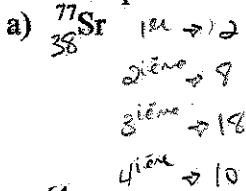 a) ⁷⁷₃₈Sr 1re → 2
2ième → 8
3ième → 18
4ième → 10